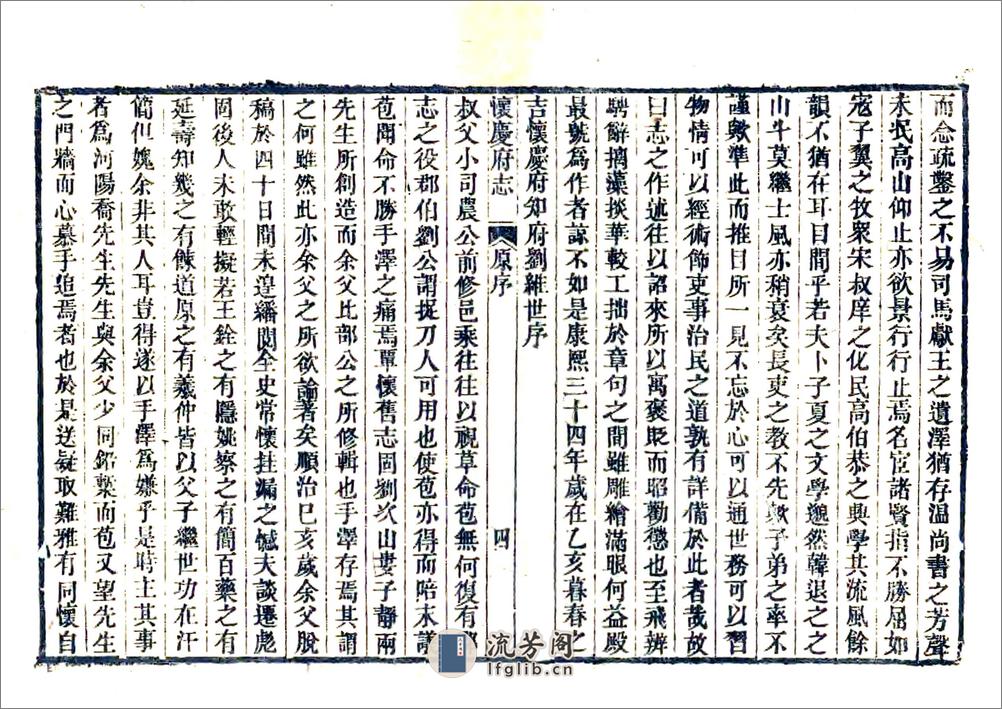 而念疏鑿之不易司馬獻王之遺澤猶存温尚書之芳聲
未泯高山仰止亦欲景行行止焉名宦諸賢指不勝屈如
寇子翼之牧衆宋叔庠之化民高伯恭之興學其流風餘
韻不猶在耳目間乎若夫卜子夏之文學邈然韓退之之
山斗莫繼士風亦稍衰矣長吏之教不先歟子弟之率不
謹歟準此而推目所一見不忘於心可以通世務可以習
物情可以經術飾吏事治民之道孰有詳備於此者哉故
曰志之作述往以詔來所以寓褒貶而昭勸懲也至飛辨
騁辭摛藻掞華較工拙於章句之間雖雕繪滿眼何益殿
最虢為作者諒不如是康熙三十四年歲在乙亥暮春之
吉懷慶府知府劉維世序
懷慶府志
原序
四
叔父小司農公前修邑乘往往以視草命苞無何復有
志之役郡伯劉公謂捉刀人可用也使苞亦得而陪末議
苞聞命不勝手澤之痛焉覃懷舊志固劉次山婁子靜兩
先生所創造而余父比部公之所修輯也手澤存焉其謂
之何雖然此亦余父之所欲論著矣順治巳亥歲余父脫
稿於四十日間未遑繙閱全史常懷挂漏之憾夫談遷彪
固後人未敢輕擬若王銓之有隱姚察之有簡百藥之有
延壽知幾之有餗道原之有羲仲皆以父子繼世功在汗
簡但媿余非其人耳豈得遂以手澤為嫌乎是時主其事
者為河陽喬先生先生與余父少同鉛槧而苞又望先生
之門牆而心慕手追焉者也於是送疑取難雅有同懷自
流芳阁
lfglib.cn